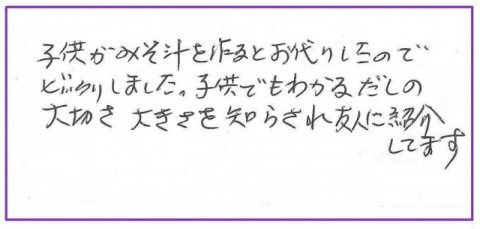 子供がみそ汁を作るとお代りしたので
ビックリしました。子供でもわかるだしの
大切さ 大きさを知らされ友人に紹介
してます